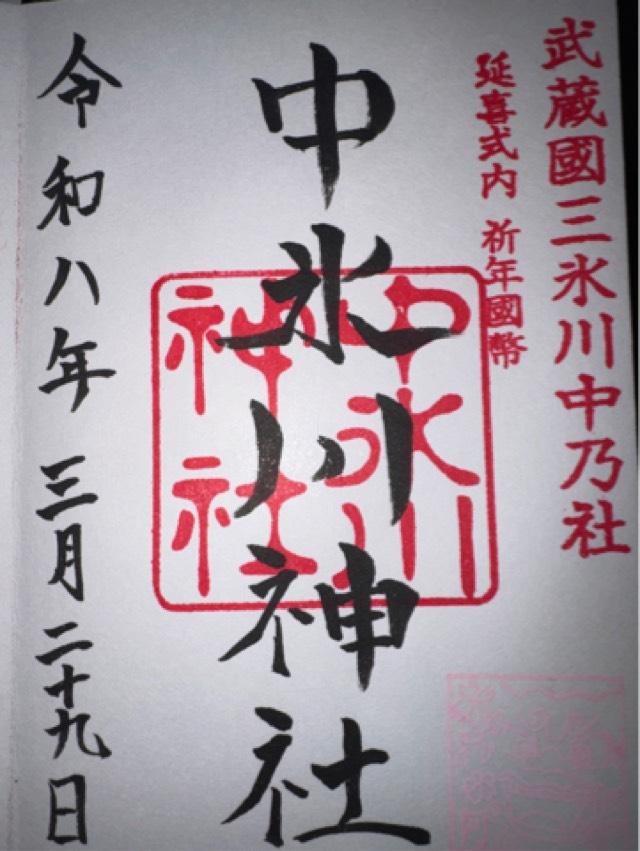 武蔵國三氷川中乃社
延喜式内 祈年國幣
中氷川神社
中氷川
神社
令和八年 三月二十九日